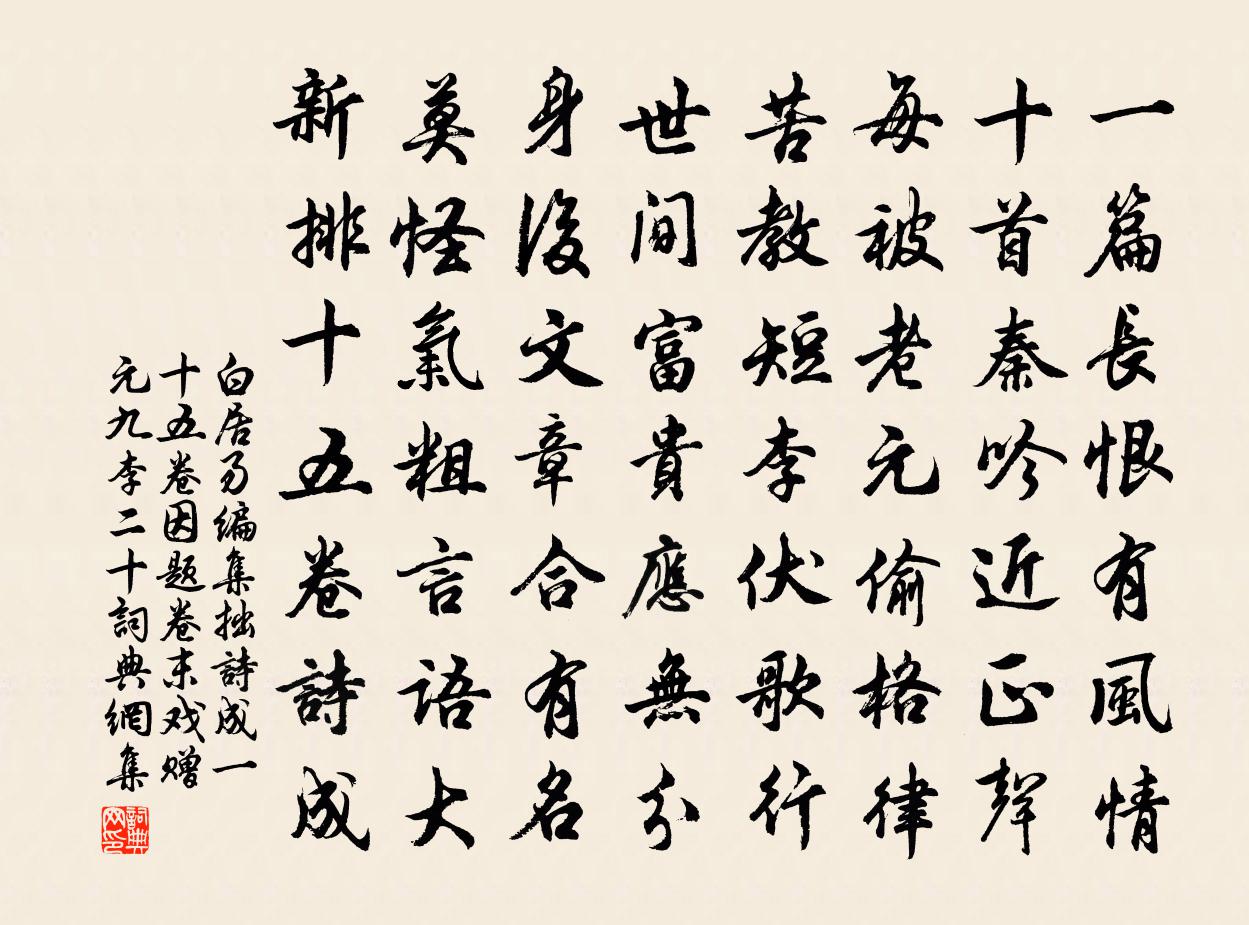 一篇長恨有風情
十首秦吟近正聲
每被老元偷格律
苦教短李伏歌行
世間富貴應無分
身後文章合有名
莫怪氣粗言語大
新排十五卷詩成
白居易编集拙詩成一
十五卷因题卷末戏赠
元九李二十詞典網集
詞典網印